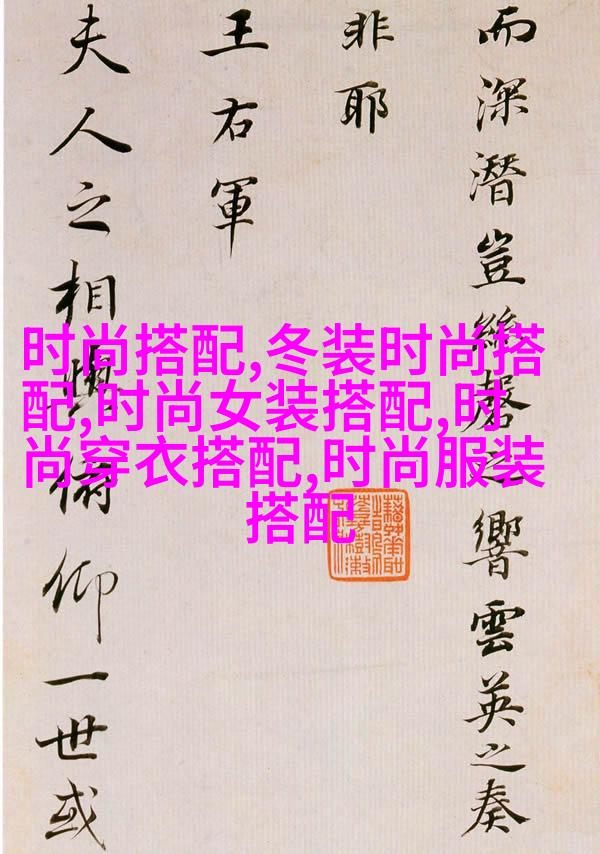 而深潛豈絲磬之響雲英之奏
非耶
王右軍
夫人之相與俯仰一世或
时尚搭配,冬装时尚搭
配,时尚女装搭配,时
尚穿衣搭配,时尚服装
搭配